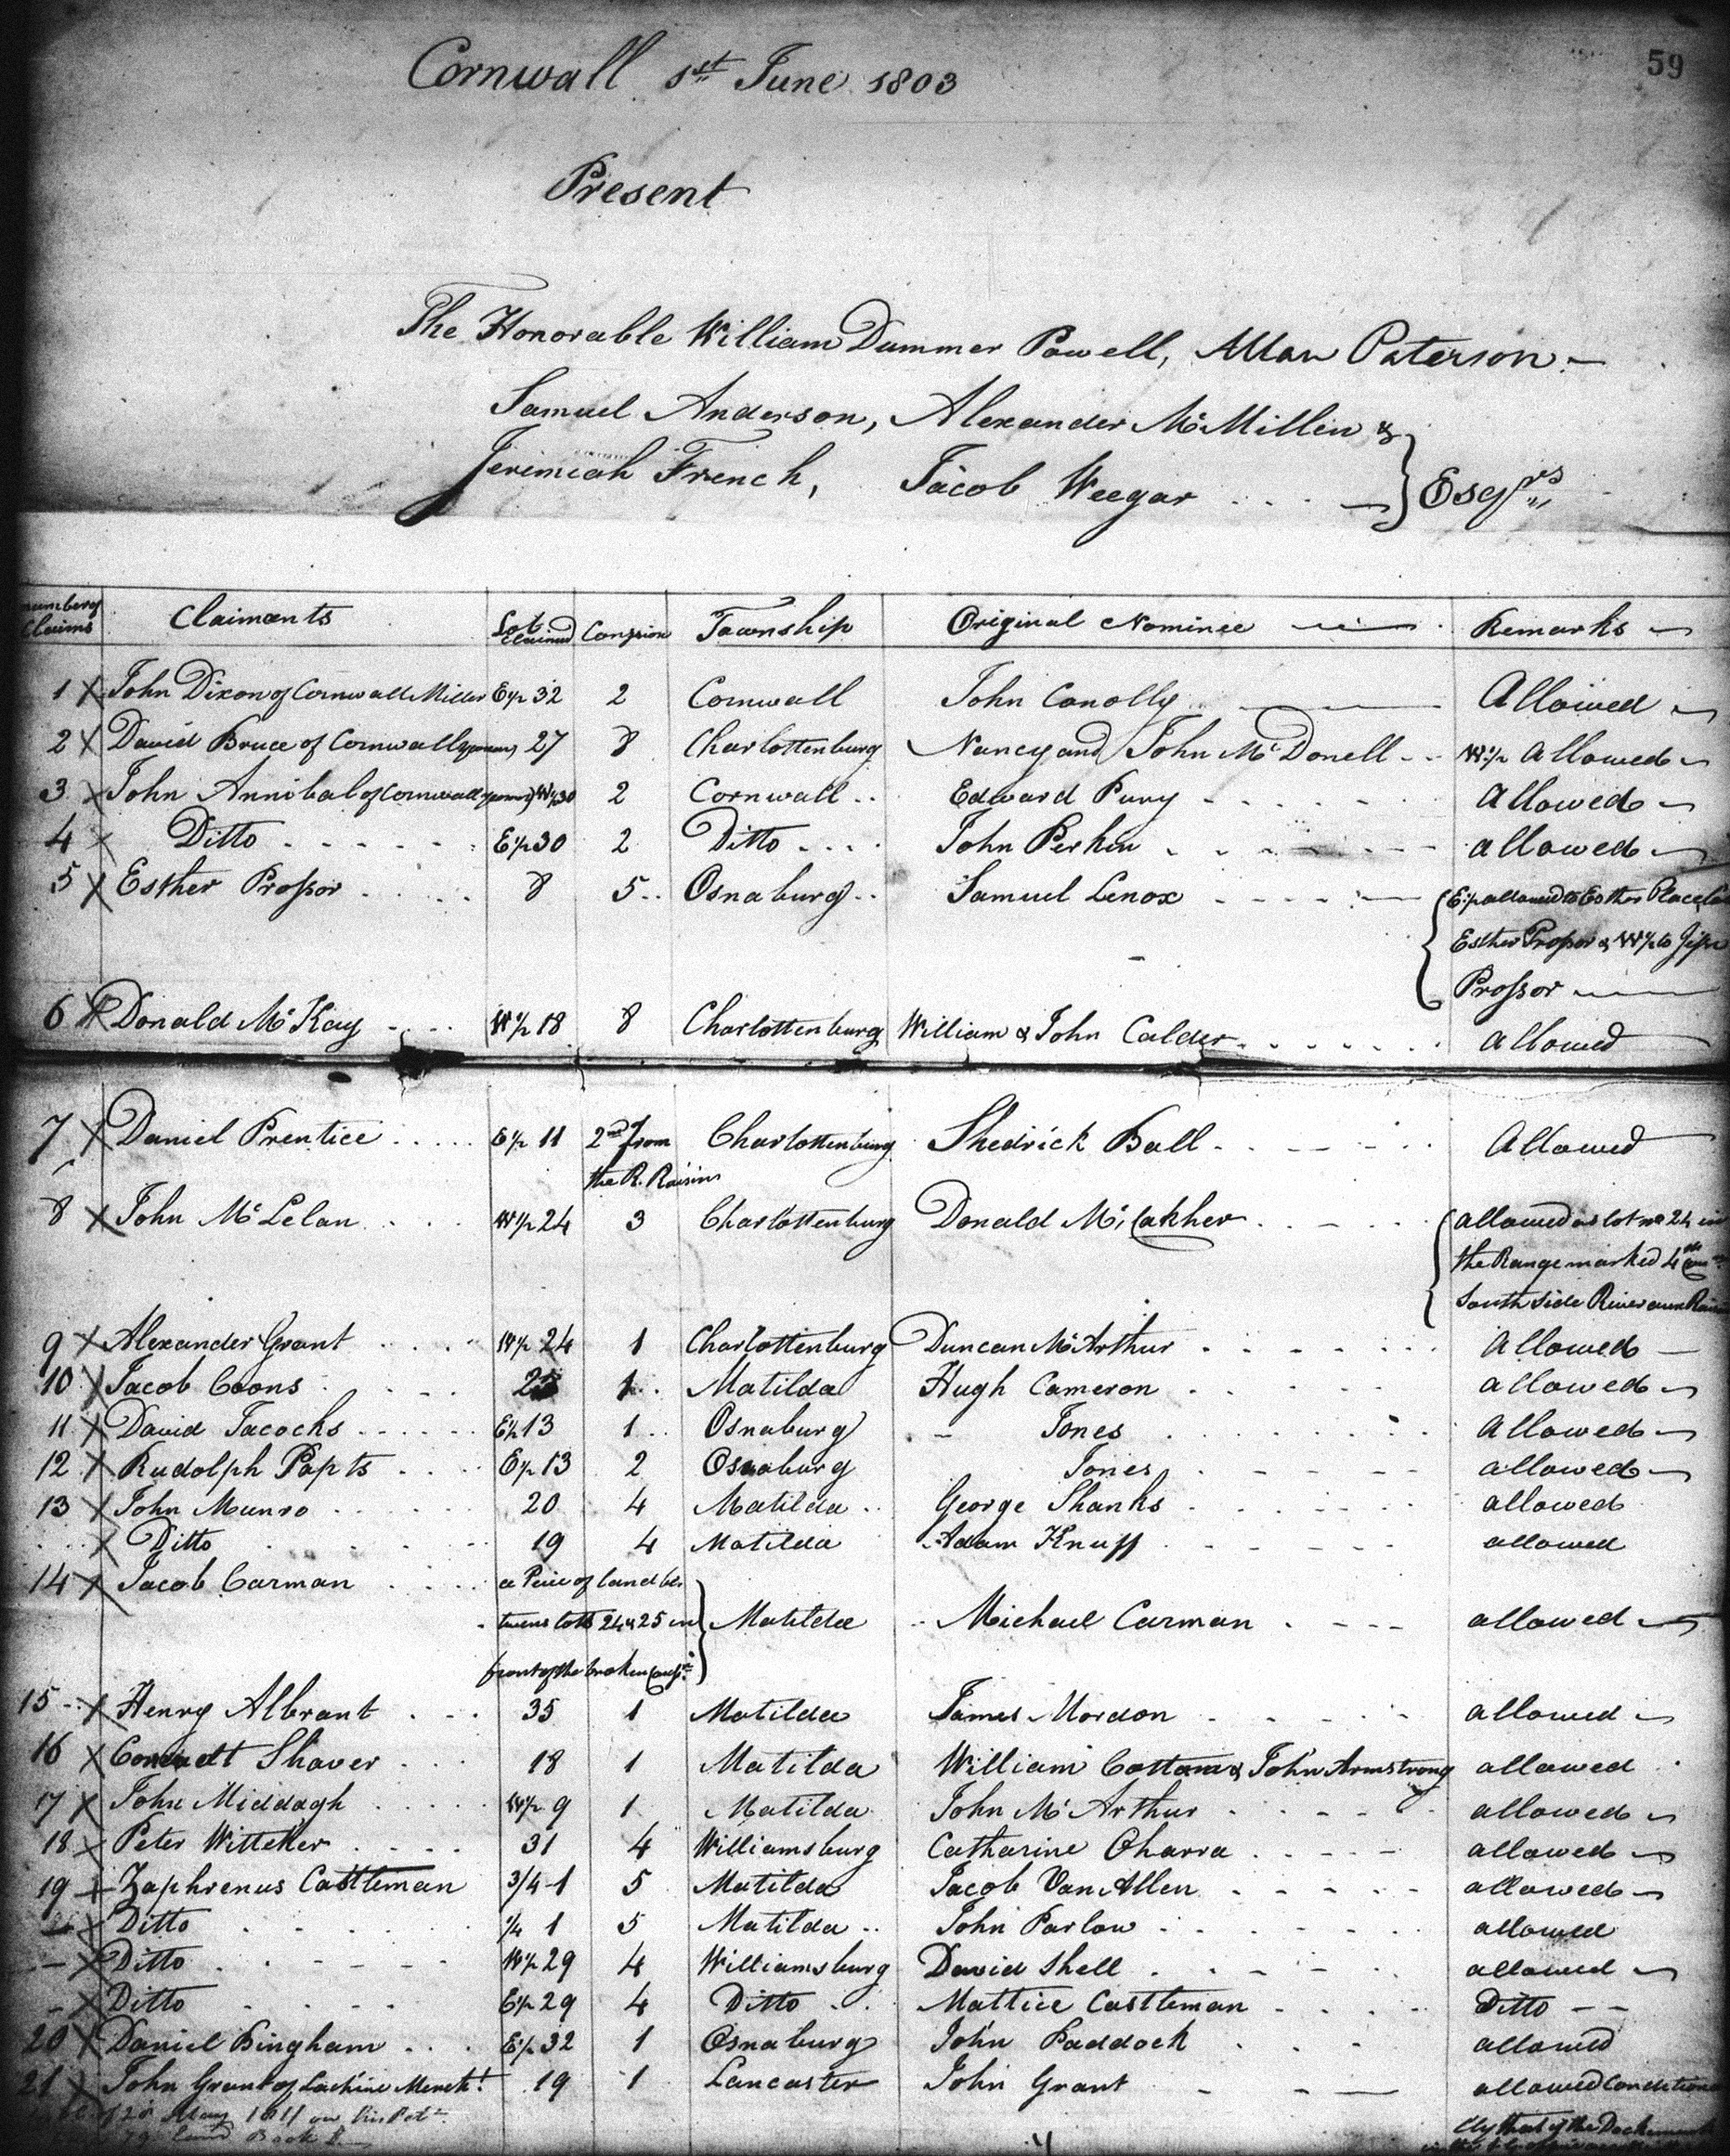 59
Cornwall 1st June 1803
Present
The Honorable William Dummer Powell, Allan Paterson
Samuel Anderson, Alexander McMillin &
Jerimiah French, Jacob Weegar } Esqrs
number of Claims Claimants Lot Claimed Conssion Township Original Nominee Remarks
1 X John Dixon of Cornwall Miller E½ 32 2 Cornwall John Conolly Allowed
2 X David Bruce of Cornwall 27 8 Charlottenburg Nancy and John McDonell W½ Allowed
3 X John Annibal of Cornwall W½ 30 2 Cornwall Edward Pury Allowed
4 X Ditto E½ 30 2 Ditto John Perkin allowed
5 X Esther Prossor 8 5 Osnaburg Samuel Lenox { E½ allowed to Esther Place
Esther Prossor & W½ to Jesse
Prossor
6 X Donald McKay W½ 18 8 Charlottenburg William & John Calder allowed
7 X Daniel Prentice E½ 11 2nd from Charlottenburg Shedrick Ball Allowed
the R. Raisin
8 X John McLelan W½ 24 3 Charlottenburg Donald { allowed as lot no 24 in
the Range marked 4th Con
South Side River aux Raisin
9 X Alexander Grant W½ 24 1 Charlottenburg Duncan McArthur Allowed
10 X Jacob Coons 1 Matilda Hugh Cameron allowed
11 X David Jacocks E½ 13 1 Osnaburg Jones Allowed
12 X Rudolph Papts E½ 13 2 Osnaburg Jones allowed
13 X John Munro 20 4 Matilda George Shanks allowed
X Ditto 19 4 Matilda Adam Knuff allowed
14 X Jacob Carman a Peice of land be-
tweens lotts 24 & 25 in } Matilda Michael Carman allowed
front of the broken Conssn
15 X Henry Albrant 35 1 Matilda James Mordon allowed
16 X Conradt Shaver 18 1 Matilda William Cottom & John Armstrong allowed
17 X John Middagh W½ 9 1 Matilda John McArthur allowed
18 X Peter Witteker 31 4 Williamsburg Catharine Oharra allowed
19 X Zaphrenus Castleman 3/4 1 5 Matilda Jacob VanAllen allowed
X Ditto ¼ 1 5 Matilda John Parlow allowed
X Ditto W½ 29 4 Williamsburg David Shell allowed
X Ditto E½ 29 4 Ditto Mattice Castleman Ditto
20 X Daniel Bingham E½ 32 1 Osnaburg John Paddock allowed
21 X John Grant of Lachine Mercht 19 1 Lancaster John Grant allowed Condition
28 May 1811 on his Petn lly that if the
79 Land Book